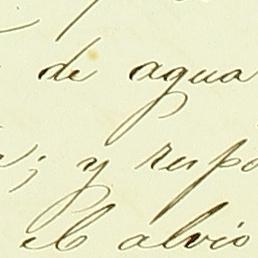 de agua
; y respo
el alvio